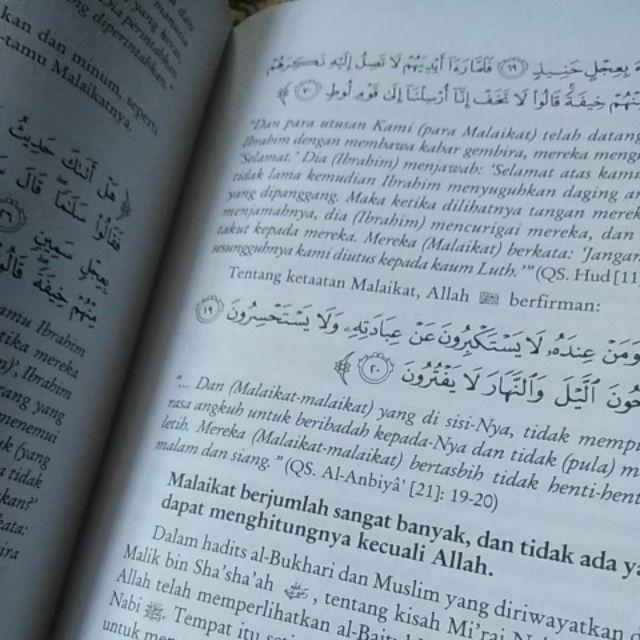 kan dan minum, seperti
-tamu Malaikatnya.
هَلْ أَتَىٰكَ حَدِيثُ
فَقَالُوا۟ سَلَٰمًا قَالَ
بِعِجْلٍ سَمِينٍ
مِنْهُمْ خِيفَةً قَالُوا۟
amu Ibrahim
tika mereka
Ibrahim
ang yang
menemui
k (yang
a tidak
kan?'
kata:
بِعِجْلٍ حَنِيذٍ ﴿٦٩﴾ فَلَمَّا رَءَآ أَيْدِيَهُمْ لَا تَصِلُ إِلَيْهِ نَكِرَهُمْ
مِنْهُمْ خِيفَةً قَالُوا۟ لَا تَخَفْ إِنَّآ أُرْسِلْنَآ إِلَىٰ قَوْمِ لُوطٍ ﴿٧٠﴾
"Dan para utusan Kami (para Malaikat) telah datang
Ibrahim dengan membawa kabar gembira, mereka meng
'Selamat.' Dia (Ibrahim) menjawab: 'Selamat atas kamu
tidak lama kemudian Ibrahim menyuguhkan daging an
yang dipanggang. Maka ketika dilihatnya tangan merek
menjamahnya, dia (Ibrahim) mencurigai mereka, dan
takut kepada mereka. Mereka (Malaikat) berkata: 'Jangan
sesungguhnya kami diutus kepada kaum Luth.'" (QS. Hud [11]
Tentang ketaatan Malaikat, Allah ﷻ berfirman:
وَمَنْ عِندَهُۥ لَا يَسْتَكْبِرُونَ عَنْ عِبَادَتِهِۦ وَلَا يَسْتَحْسِرُونَ ﴿١٩﴾
حُونَ ٱلَّيْلَ وَٱلنَّهَارَ لَا يَفْتُرُونَ ﴿٢٠﴾
"... Dan (Malaikat-malaikat) yang di sisi-Nya, tidak mempu
rasa angkuh untuk beribadah kepada-Nya dan tidak (pula) m
letih. Mereka (Malaikat-malaikat) bertasbih tidak henti-hent
malam dan siang." (QS. Al-Anbiyâ' [21]: 19-20)
Malaikat berjumlah sangat banyak, dan tidak ada ya
dapat menghitungnya kecuali Allah.
Dalam hadits al-Bukhari dan Muslim yang diriwayatkan
Malik bin Sha'sha'ah , tentang kisah Mi'raj N
Allah telah memperlihatkan al-Bait
Nabi ﷺ. Tempat itu se
untuk